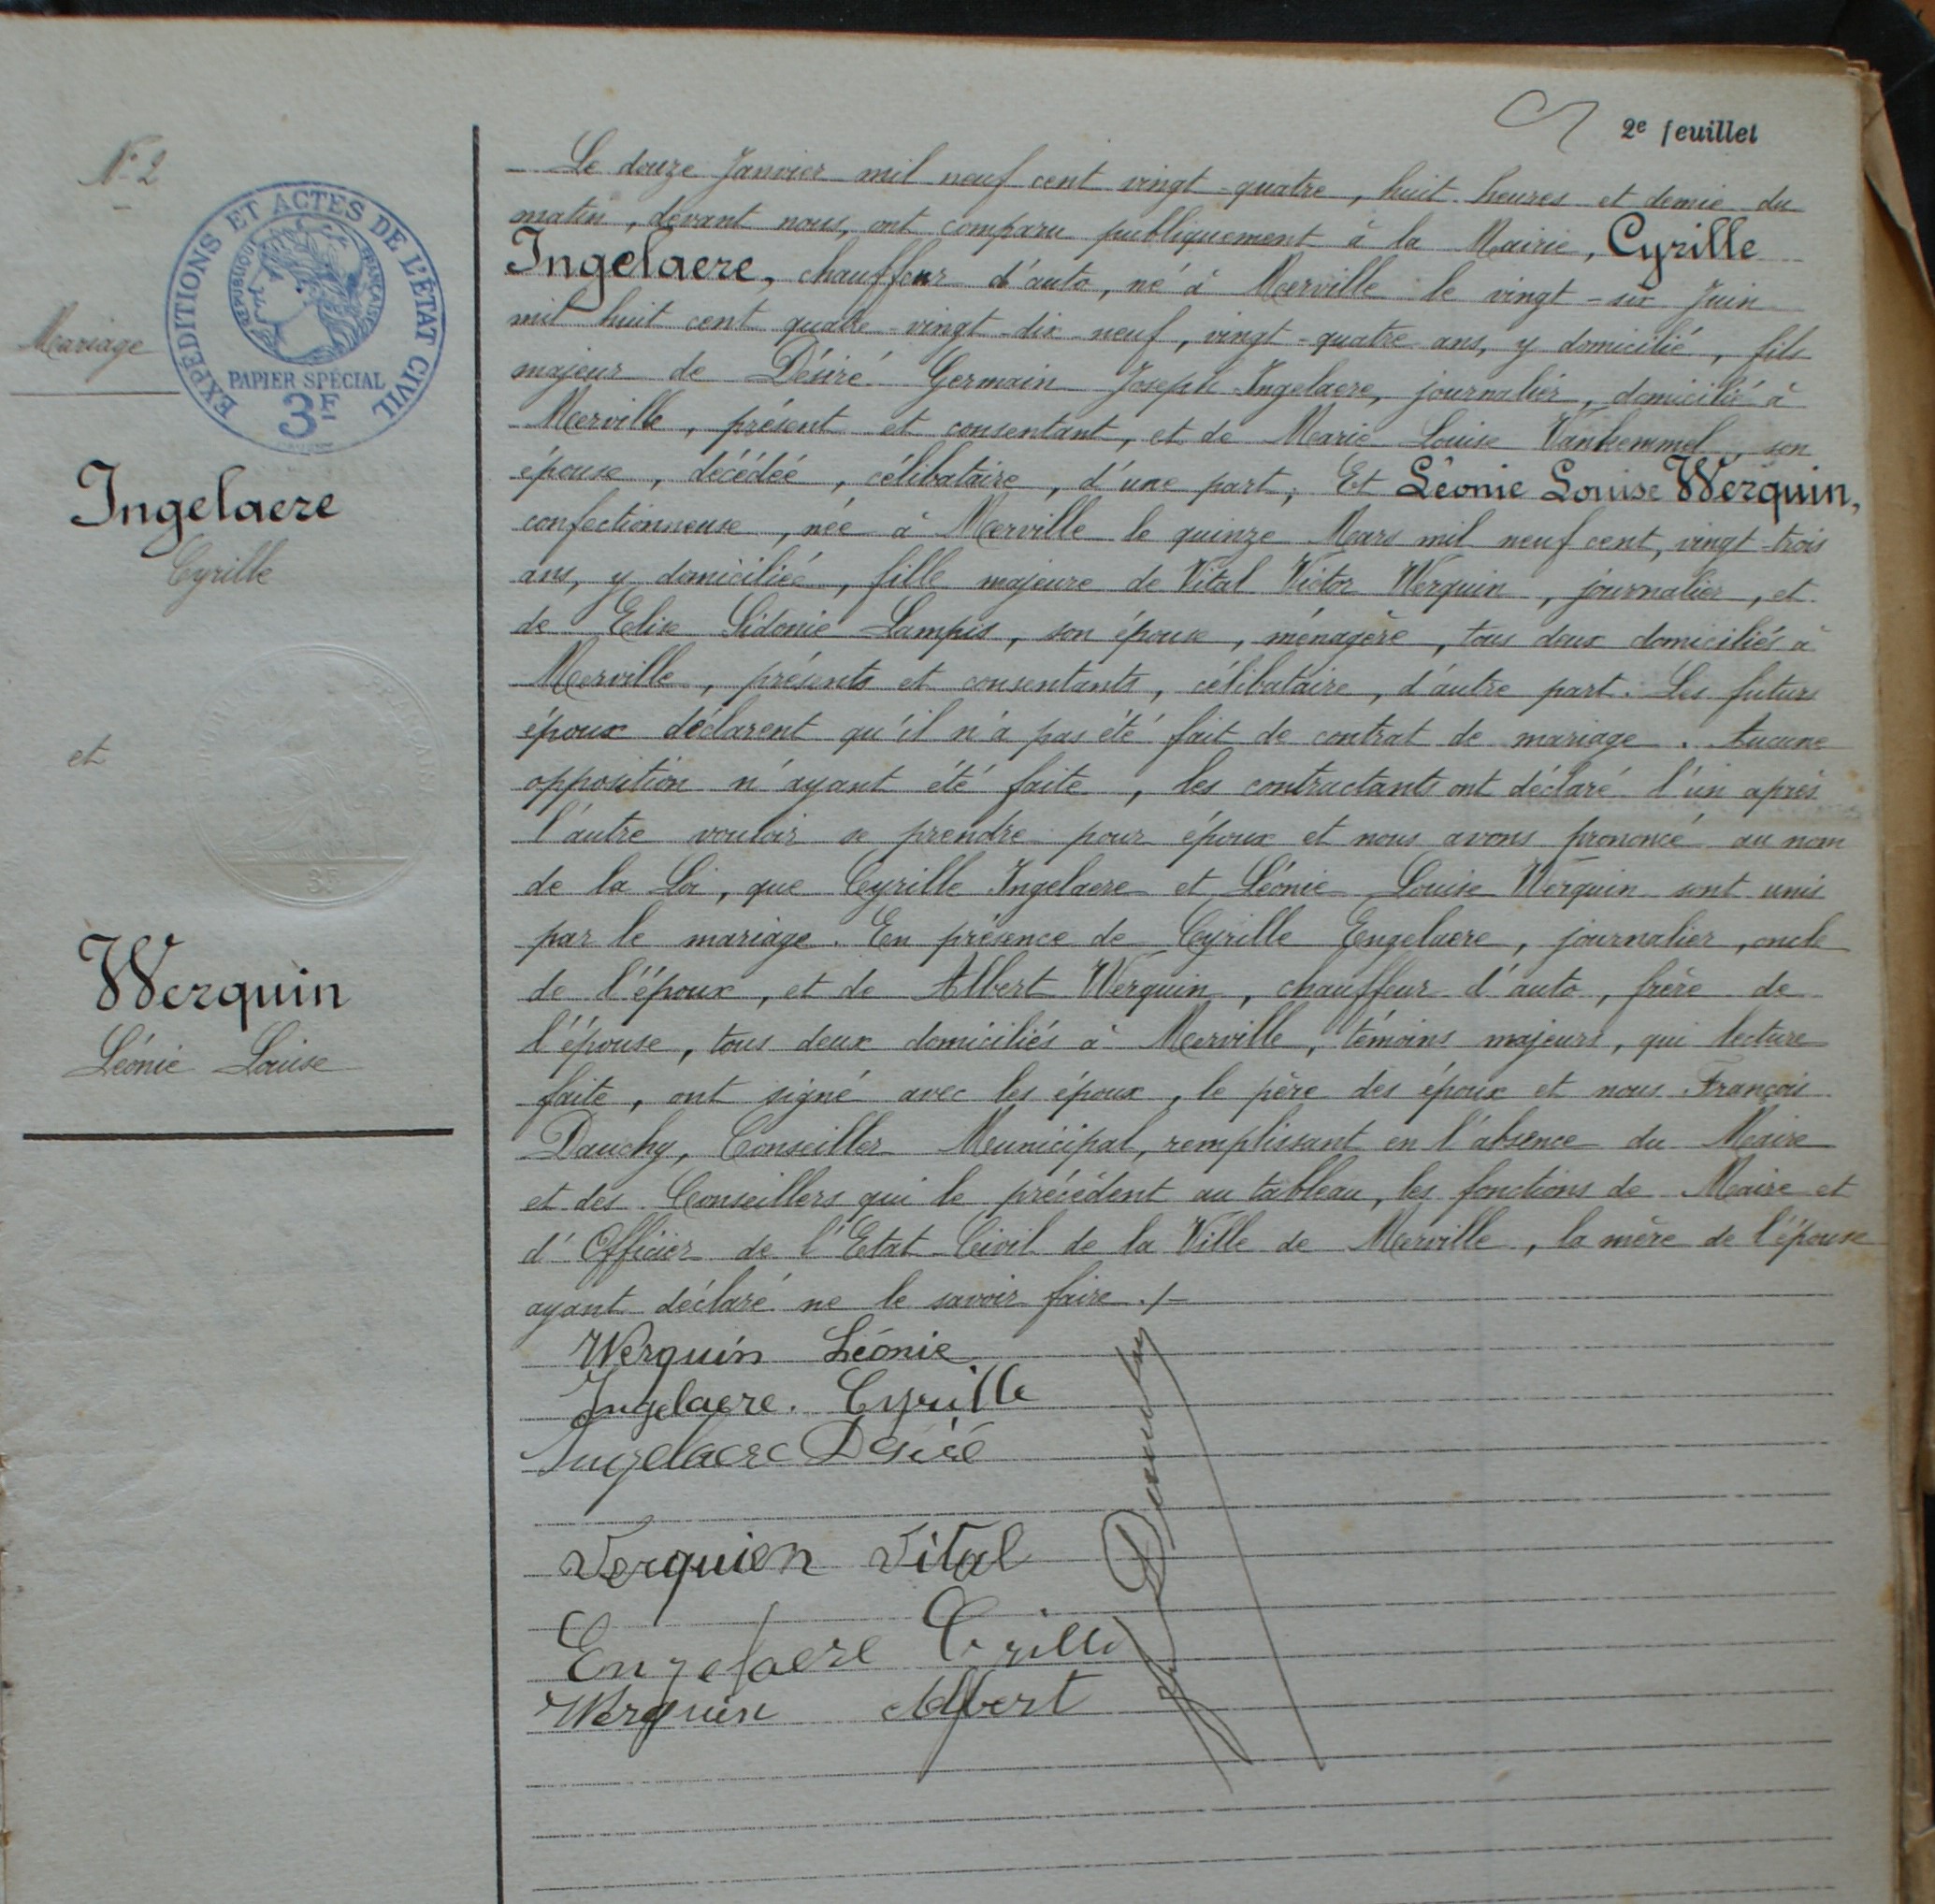 2e feuillet
N° 2
EXPÉDITIONS ET ACTES DE L'ÉTAT CIVIL
RÉPUBLIQUE FRANÇAISE
PAPIER SPÉCIAL
3F
Mariage
Ingelaere
Cyrille
et
Werquin
Léonie Louise
Le douze Janvier mil neuf cent vingt-quatre, huit heures et demie du
matin, devant nous, ont comparu publiquement à la Mairie, Cyrille
Ingelaere, chauffeur d'auto, né à Merville le vingt-six Juin
mil huit cent quatre-vingt-dix-neuf, vingt-quatre ans, y domicilié, fils
majeur de Désiré Germain Joseph Ingelaere, journalier, domicilié à
Merville, présent et consentant, et de Marie Louise Vanhemmel, son
épouse, décédée, célibataire, d'une part; Et Léonie Louise Werquin,
confectionneuse, née à Merville le quinze Mars mil neuf cent, vingt-trois
ans, y domiciliée, fille majeure de Vital Victor Werquin, journalier, et
de Elise Sidonie Lampis, son épouse, ménagère, tous deux domiciliés à
Merville, présents et consentants, célibataire, d'autre part. Les futurs
époux déclarent qu'il n'a pas été fait de contrat de mariage. Aucune
opposition n'ayant été faite, les contractants ont déclaré l'un après
l'autre vouloir se prendre pour époux et nous avons prononcé au nom
de la Loi, que Cyrille Ingelaere et Léonie Louise Werquin sont unis
par le mariage. En présence de Cyrille Engelaere, journalier, oncle
de l'époux, et de Albert Werquin, chauffeur d'auto, frère de
l'épouse, tous deux domiciliés à Merville, témoins majeurs, qui lecture
faite, ont signé avec les époux, le père des époux et nous François
Dauchy, Conseiller Municipal, remplissant en l'absence du Maire
et des Conseillers qui le précédent au tableau, les fonctions de Maire et
d'Officier de l'Etat-Civil de la Ville de Merville, la mère de l'épouse
ayant déclaré ne le savoir faire./
Werquin Léonie
Ingelaere. Cyrille
Ingelaere Désiré
Verquien Vital
Engelaere Cyrille
Werquin Albert
Dauchy